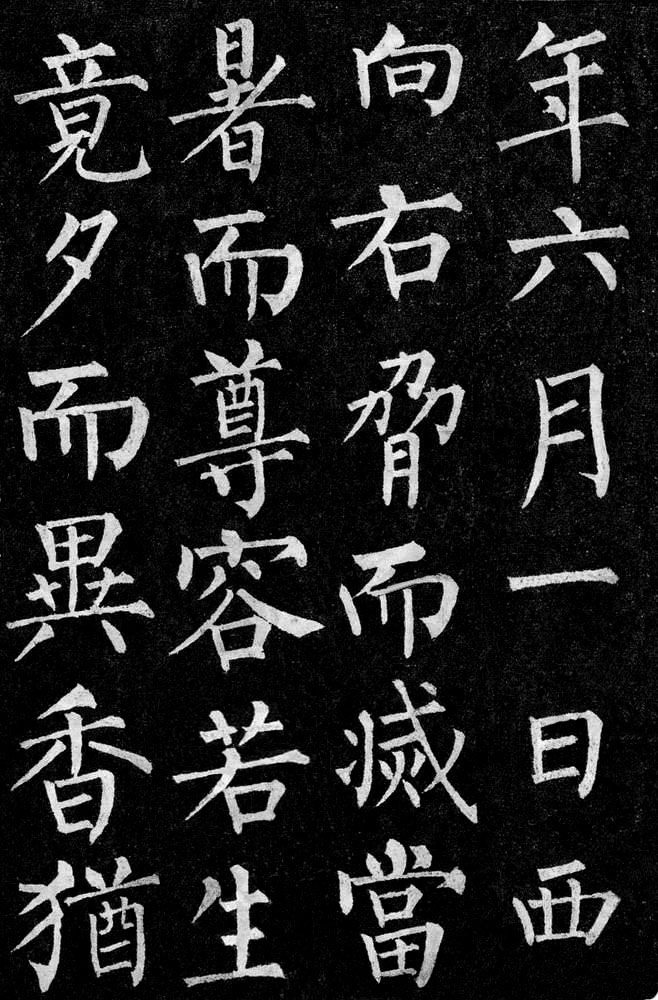 年六月一日西
向右脅而滅當
暑而尊容若生
竟夕而異香猶